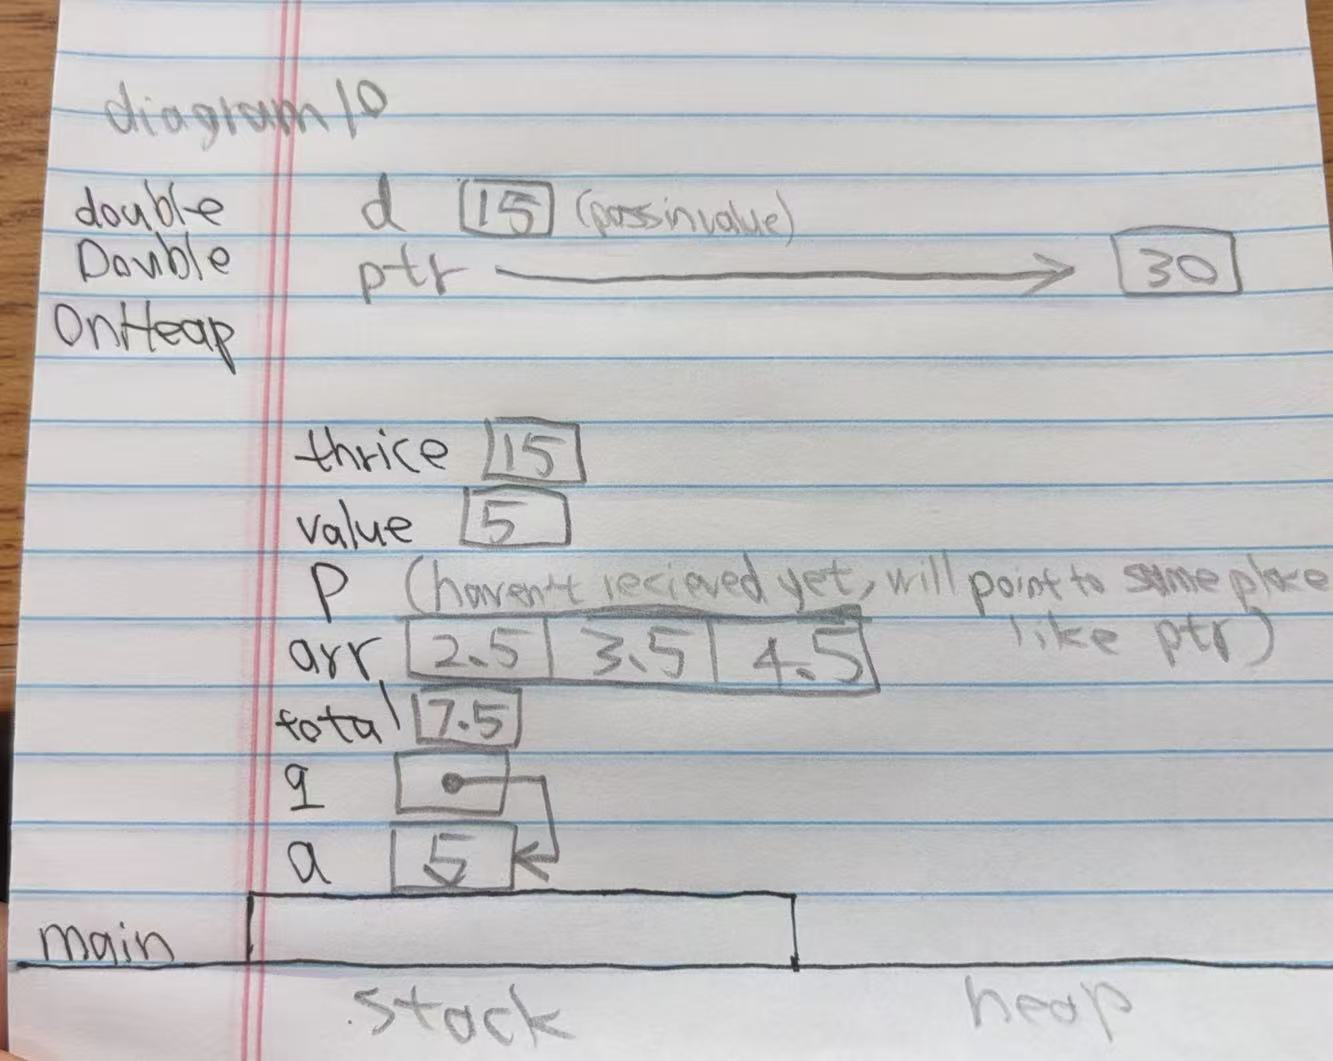 diagram 10
double d 15 (pass in value)
Double ptr 30
OnHeap
thrice 15
value 5
P (haven't recieved yet, will point to same place
like ptr)
arr 2.5 3.5 4.5
total 7.5
q
a 5
main
stack heap